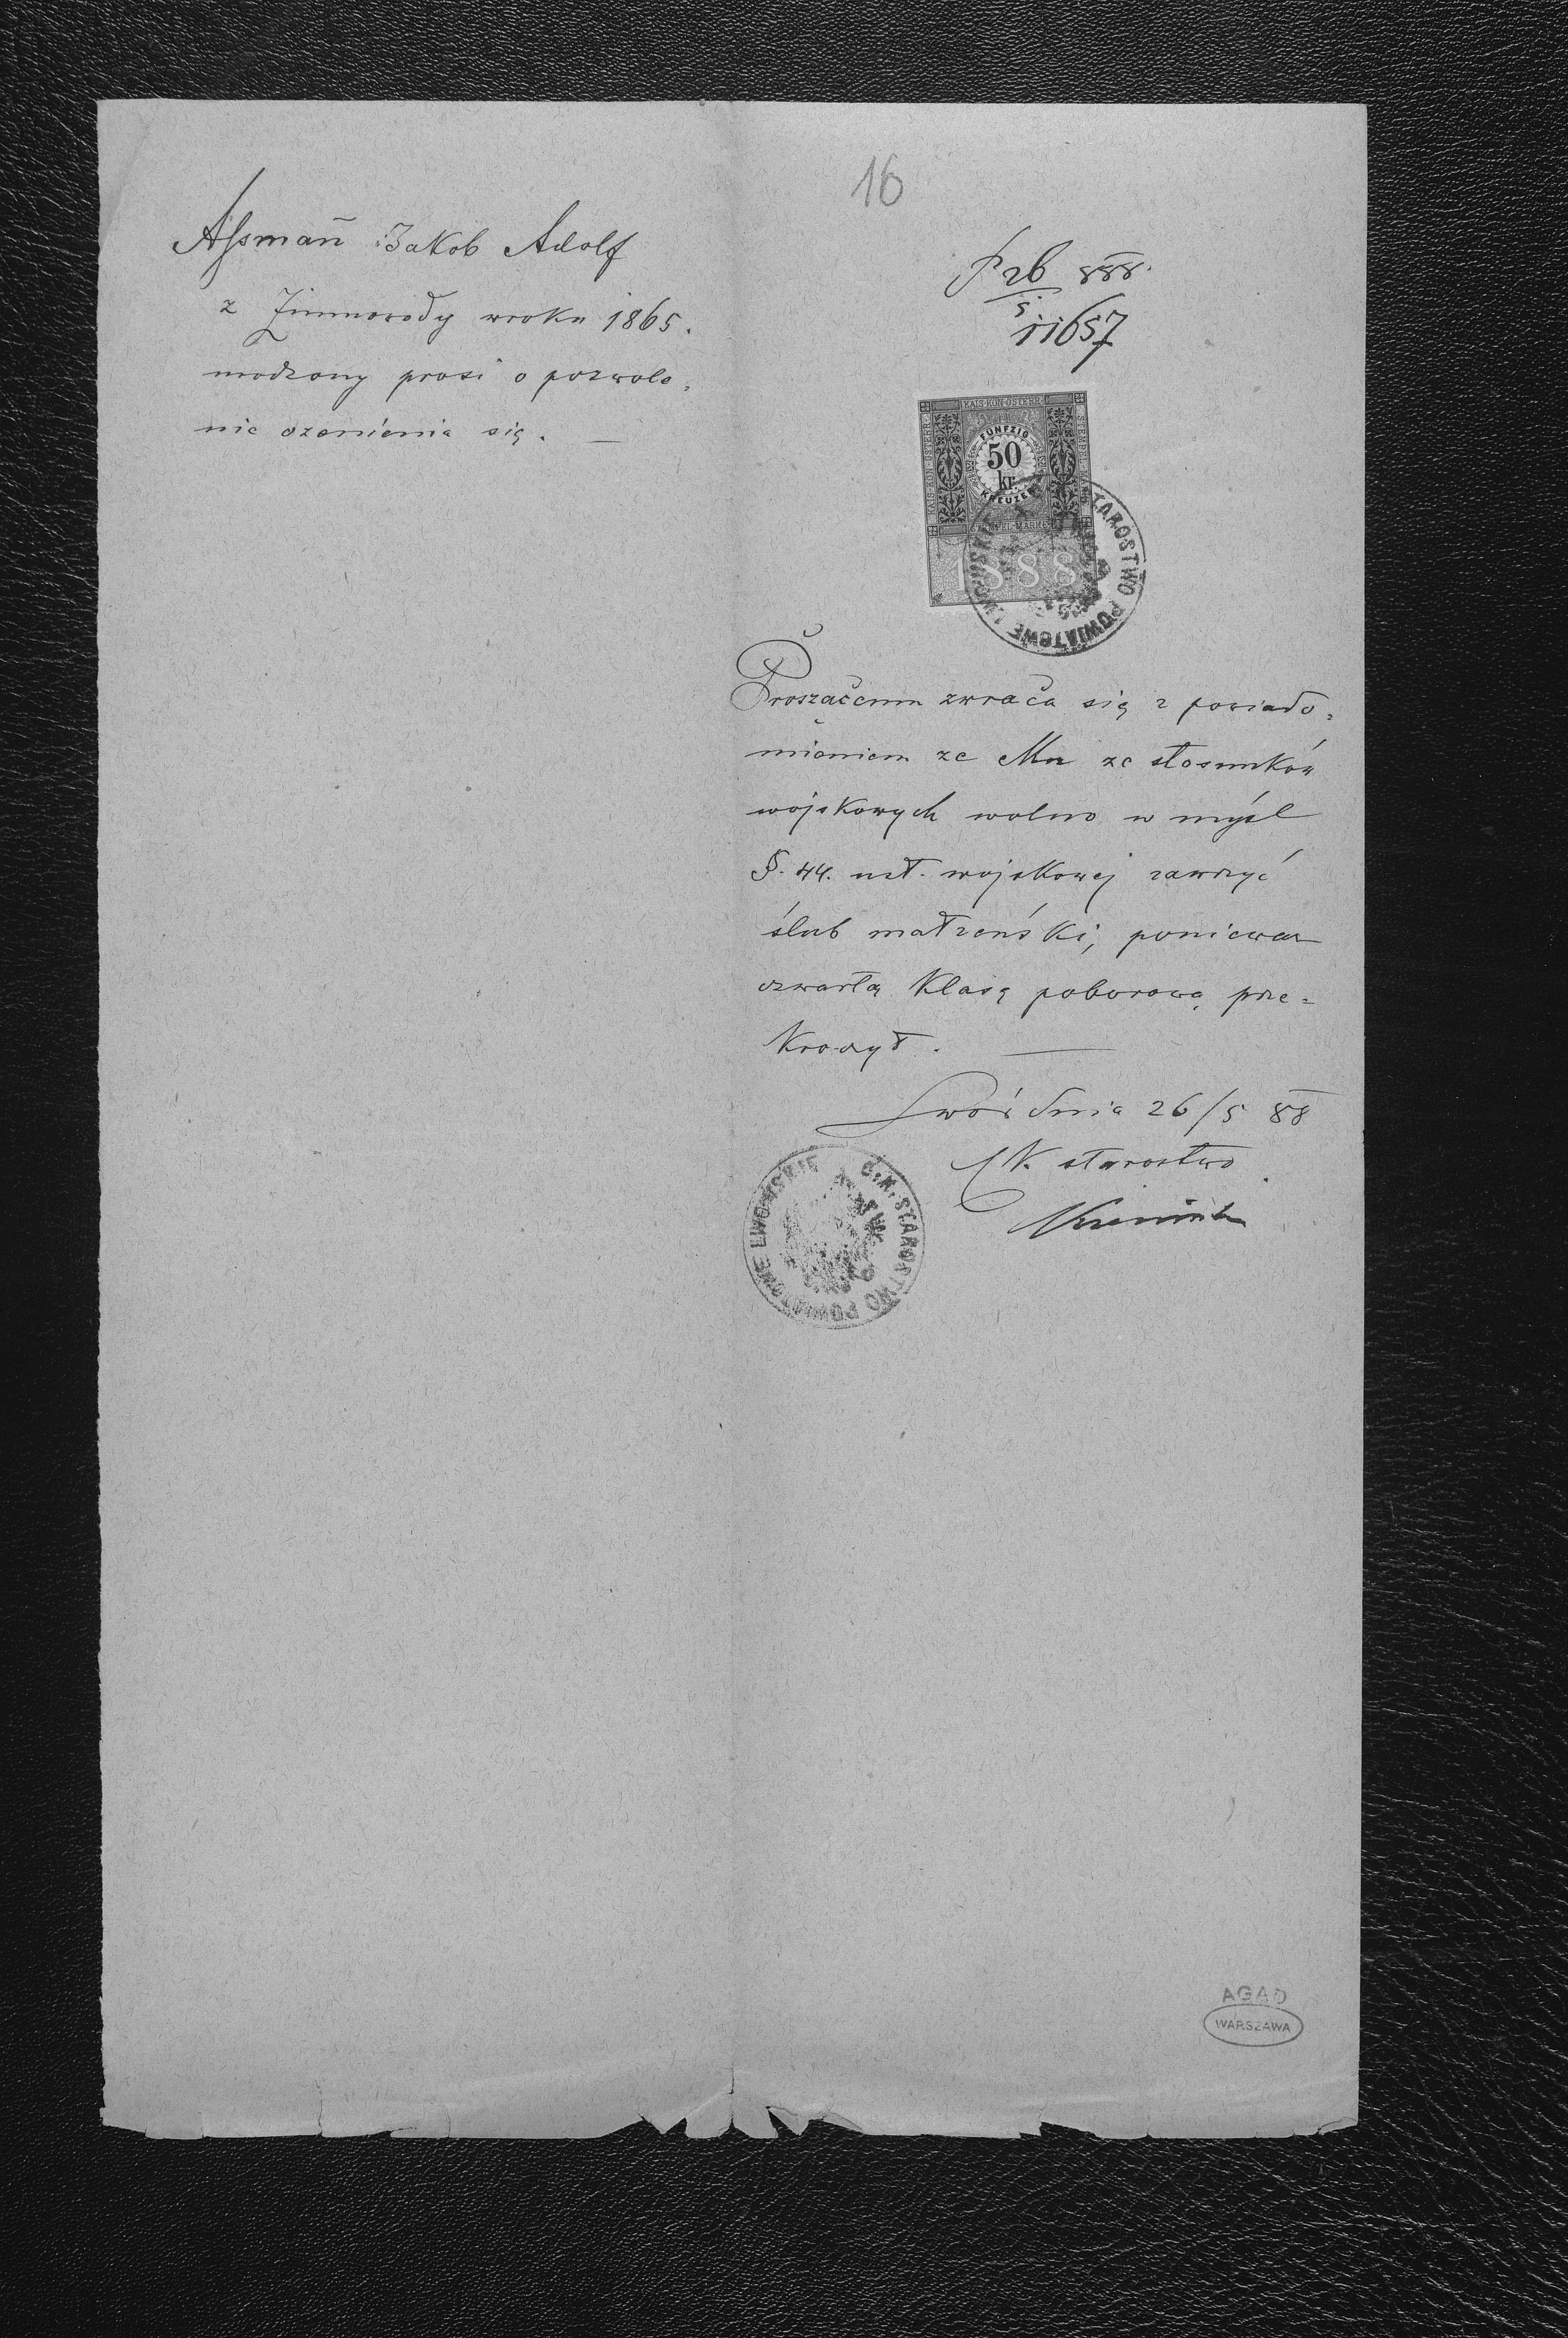 16
Aſsman̄ Jakob Adolf
z Zimnowody wroku 1865.
rodzony prosi o pozwole=
nie ożenienia się. —
Prb 888.
5
11657
KAIS·KÖN·ÖSTERR·
FÜNFZIG
50
kr.
KREUZER
STEMPEL-MARKE
1888
STAROSTWO POWIATOWE LWOWSKIE
Proszącemu zwraca się z powiado=
mieniem że Mu ze stosunków
wojskowych wolno w myśl
§. 44. ust. wojskowej zawrzyć
ślub małżeński, ponieważ
czwartą klasę poborową prze=
kroczył. —
Lwów dnia 26/5 88
C.K. starostwo
C.K. STAROSTWO POWIATOWE LWOWSKIE
AGAD
WARSZAWA